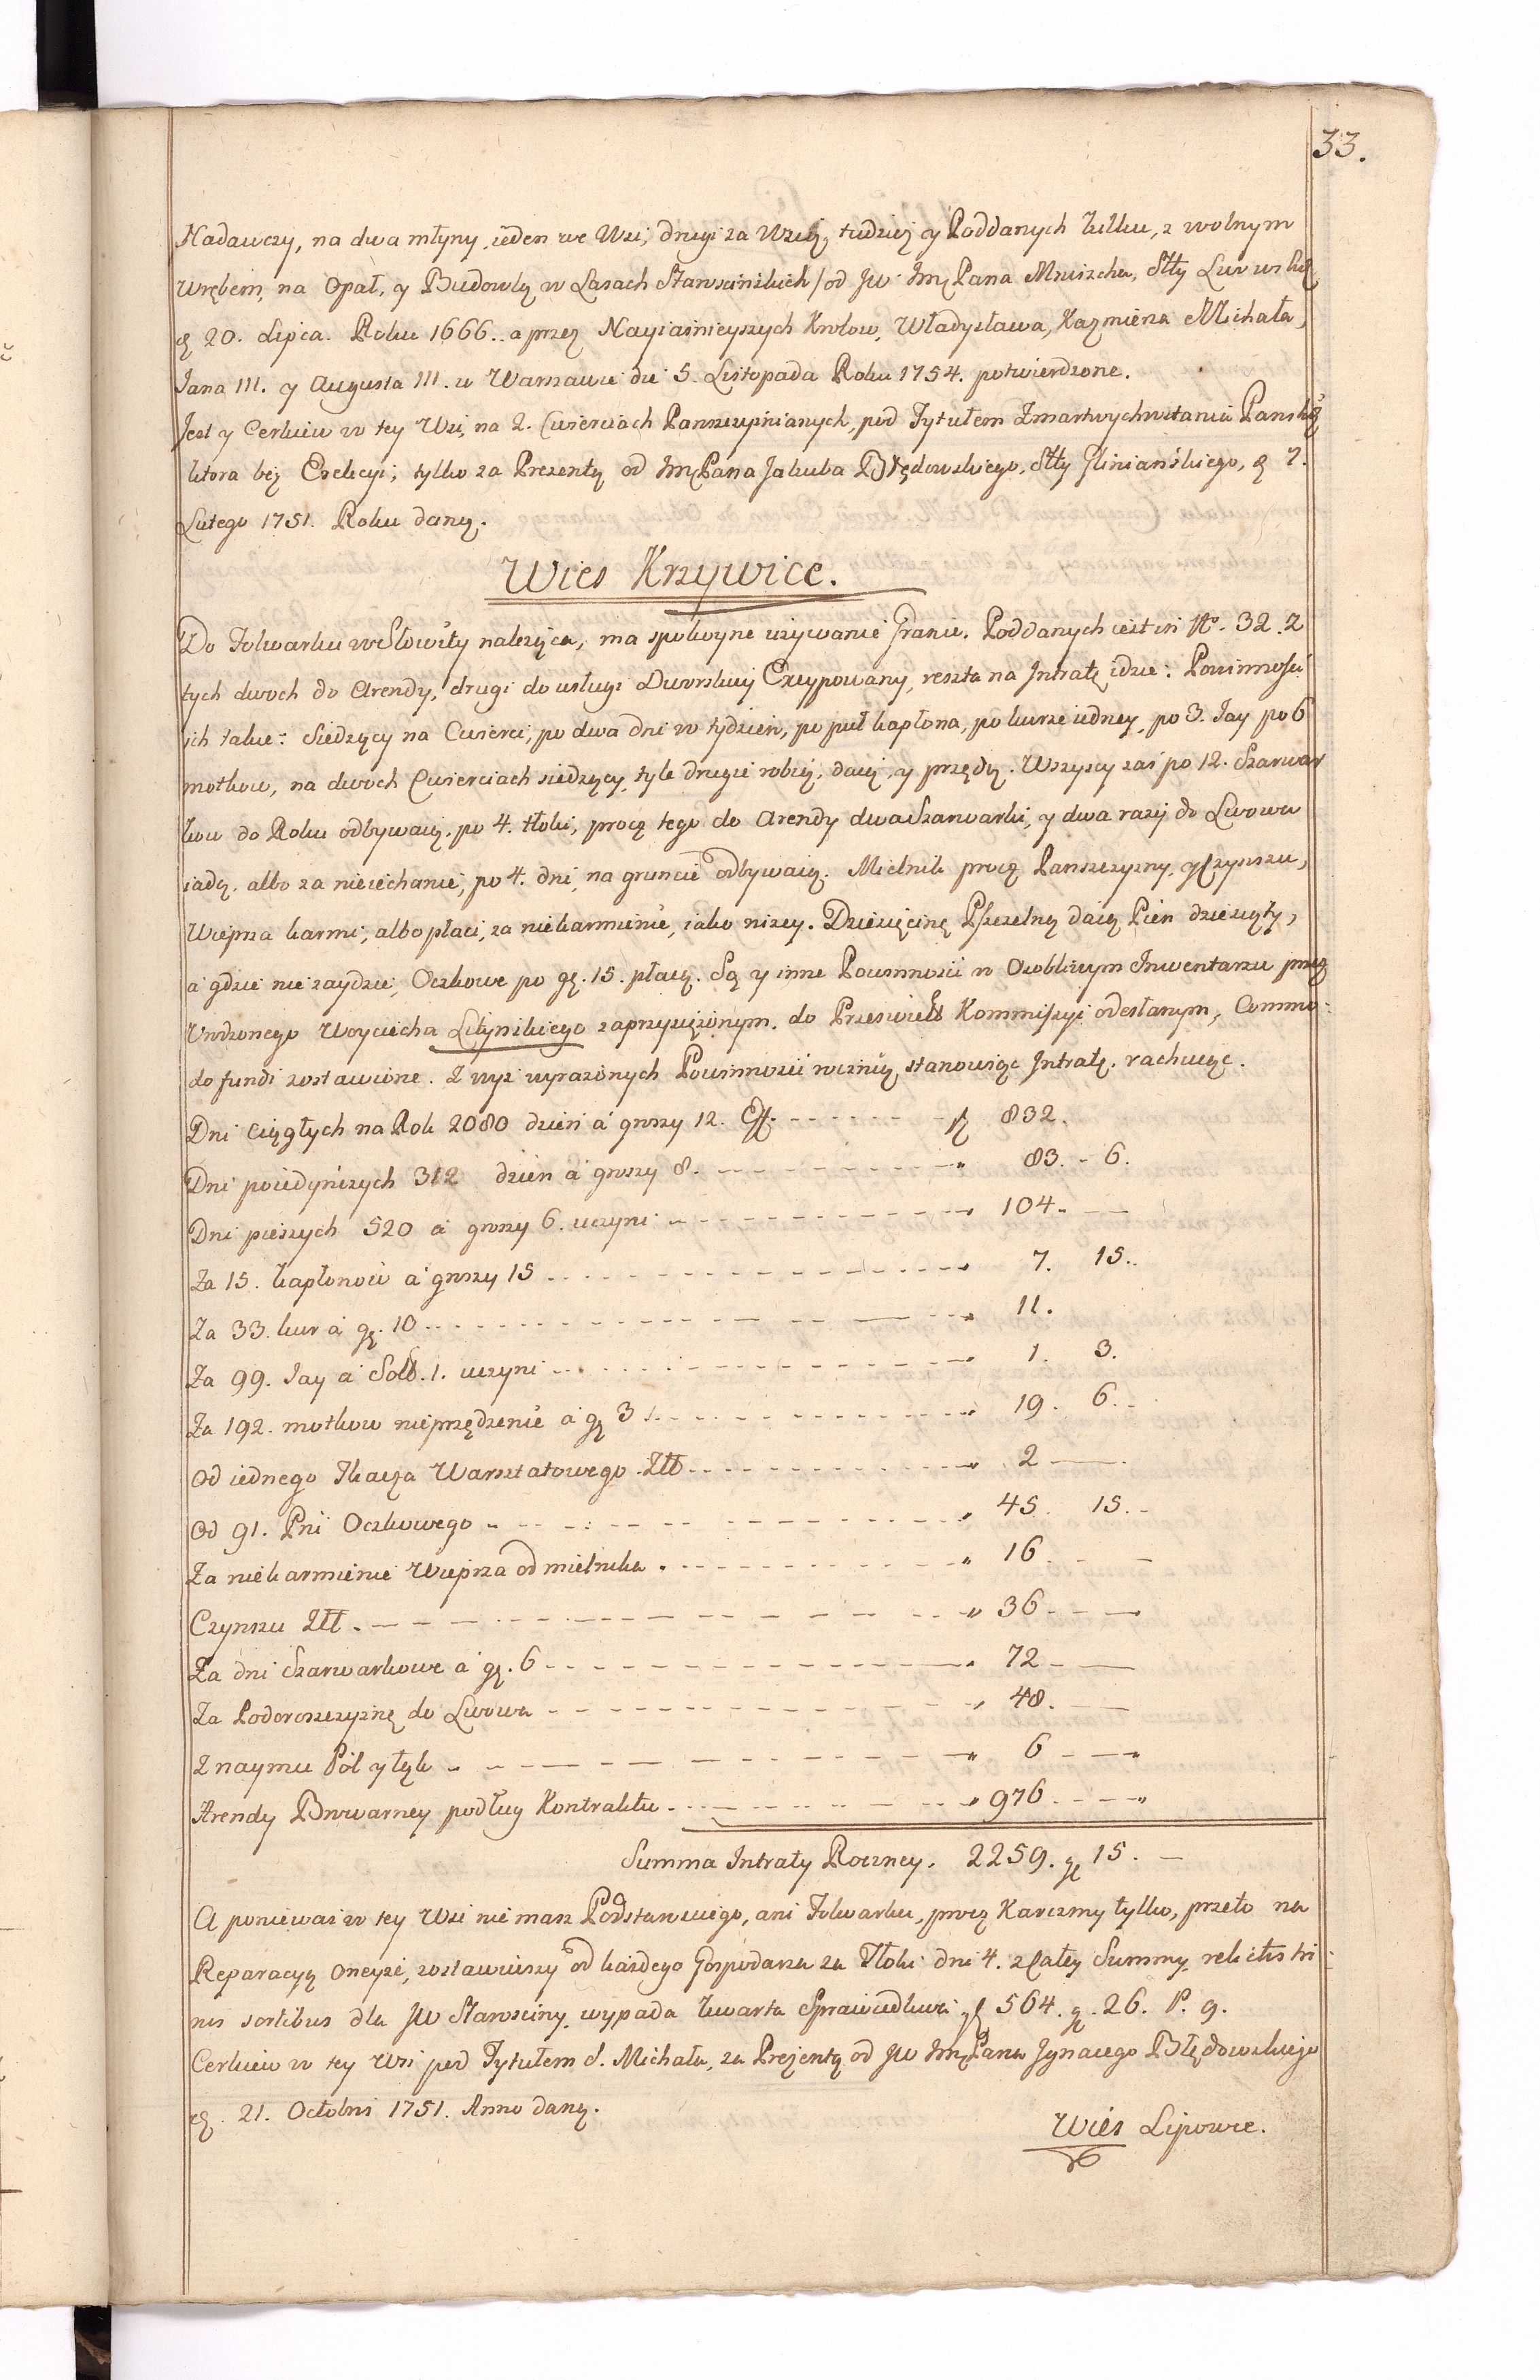 33.
Nadawczy, na dwa młyny, ieden we Wsi, drugi za Wsią, tudzież y Poddanych kilku, z wolnym
Wrębem, na Opał, y Budowlą w Lasach Starościńskich / od JW Jmć Pana Mniszcha, Stty Lwowskię
20. Lipca. Roku 1666. a przez Nayiaśnieyszych Krolow, Władysława, Kazmierza Michała,
Jana III. y Augusta III. w Warszawie die 5. Listopada Roku 1754. potwierdzone.
Jest y Cerkiew w tey Wsi, na 2. Cwierciach Pańszczyźnianych, pod Tytułem Zmartwychwstania Pańskię
ktora bez Erekcyi; tylko za Prezentą od Jmć Pana Jakuba Błędowskiego, Stty Gliniańskiego, 7.
Lutego 1751. Roku daną.
Wies Krzywice.
Do Folwarku w Słowity należąca, ma spokoyne używanie Granic. Poddanych iest wsi No. 32. Z
tych dwoch do Arendy, drugi do usługi Dworskiey Excypowany, reszta na Intratę idzie: Powinność
ich takie: Siedzący na Cwierci, po dwa dni w tydzień, po puł kapłona, po kurze iedney, po 3. Jay po 6
motkow, na dwoch Cwierciach siedzący, tyle drugie robią, daią, y przędą. Wszyscy zaś po 12. Szarwar
kow do Roku odbywaią, po 4. tłoki, procz tego do Arendy dwa Szarwarki, y dwa razy do Lwowa
iadą, albo za nieiechanie, po 4. dni, na gruncie odbywaią. Mielnik procz Pańszczyzny, y Czynszu,
Wieprza karmi, albo płaci, za niekarmienie, iako niżey. Dziesięcinę Pszczelną daią Pień dziesiąty,
a gdzie nie zaydzie, Oczkowe po gr. 15. płacą. Są y inne Powinności w Osobliwym Inwentarzu przez
Urodzonego Woyciecha Letynskiego zaprzysiężonym, do Przeświett Kommissyi odesłanym, Commo-
do fundi zostawione. Z wyz wyrażonych Powinności roczną stanowiąc Intratę, rachuiąc.
Dni ciągłych na Rok 2080 dzień á groszy 12. 832.
Dni poiedyńczych 312 dzień á groszy 8. - - - " 83. - 6.
Dni pieszych 520 á groszy 6. uczyni - - - " 104. - —
Za 15. kapłonow á groszy 15 - - - " 7. 15.
Za 33. kur á gr. 10 - - - " 11.
Za 99. Jay á Soll. 1. uczyni - - - " 1. 3.
Za 192. motkow nieprzędzenie á gr 3 - - - " 19. 6. -
Od iednego Tkacza Warsztatowego Złł - - - " 2 —
Od 91. Pni Oczkowego - - - " 45. 15. -
Za niekarmienie Wieprza od mielnika. - - - " 16. - —
Czynszu Złł. - - - " 36 - - —
Za dni Szarwarkowe á gr. 6 - - - " 72 - —
Za Podoroszczyznę do Lwowa - - - " 48. —
Z naymu Pól y łąk - - - " 6 - —"
Arendy Browarney podług Kontraktu - - - " 976. - - —"
Summa Intraty Roczney. 2259. gr 15. —
A poniewaz w tey Wsi nie masz Podstarosciego, ani Folwarku, procz Karczmy tylko, przeto na
Reparacyą oneyże, zostawiwszy od każdego Gospodarza za Tłoki dni 4. z Całey Summy, relictis tri-
nis sortibus dla JW Starosciny, wypada kwarta Sprawiedliwa zł 564. gr. 26. P. 9.
Cerkiew w tey Wsi pod Tytułem S. Michała, za Prezentą od JW Jmć Pana Ignacego Błędowskiego
21. Octobris 1751. Anno daną.
Wieś Lipowce.